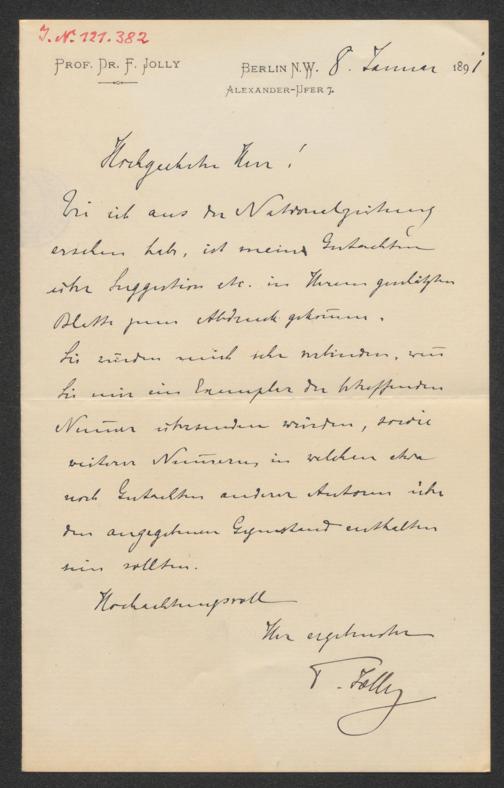 J. N. 121.382
PROF. DR. F. JOLLY
BERLIN N.W. 8. Januar 1891
ALEXANDER-UFER 7.
Hochgeehrter Herr!
Wie ich aus der Nationalzeitung
ersehen habe, ist mein Gutachten
über Suggestion etc. in Ihrem geschätzten
Blatte zum Abdruck gekommen.
Sie würden mich sehr verbinden, wenn
Sie mir ein Exemplar der betreffenden
Nummer übersenden würden, sowie
weiterer Nummern, in welchen etwa
noch Gutachten anderer Autoren über
den angegebenen Gegenstand enthalten
sein sollten.
Hochachtungsvoll
Ihr ergebenster
F. Jolly